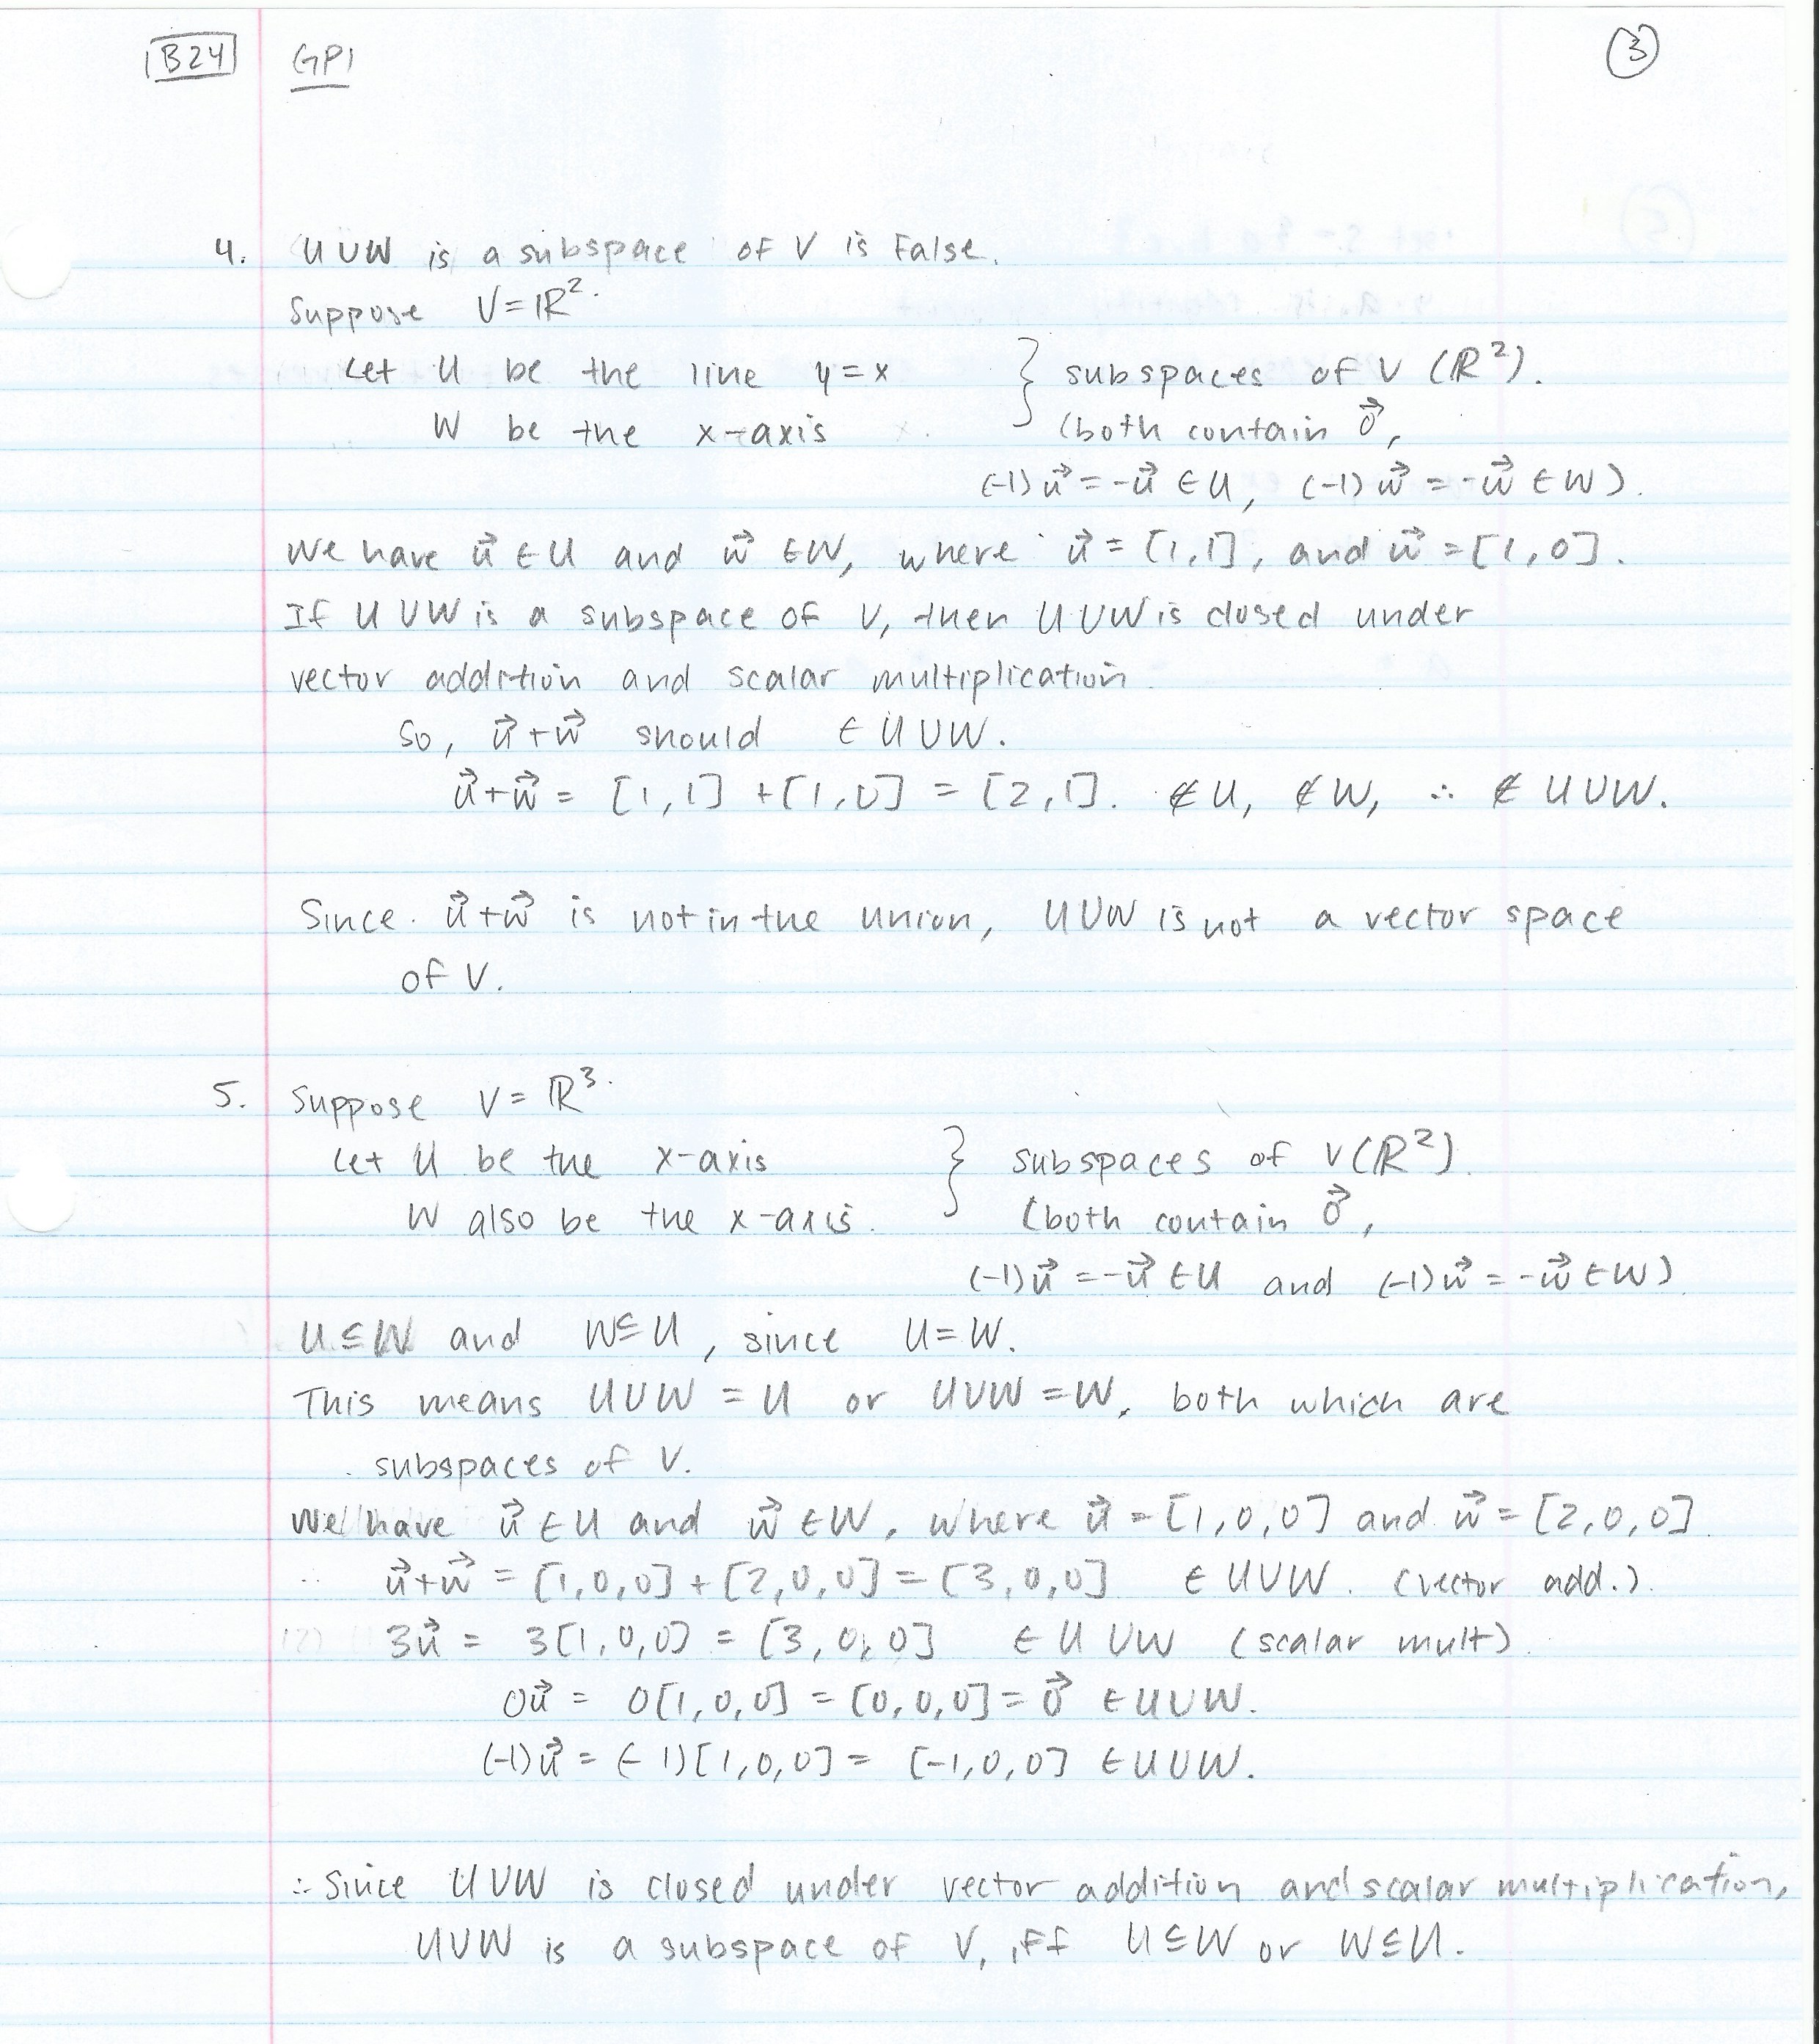 B24 GP1 3
4. U∪W is a subspace of V is False.
Suppose V=ℝ².
Let U be the line y=x } subspaces of V (ℝ²).
W be the x-axis (both contain 0⃗,
(-1)u⃗ = -u⃗ ∈ U, (-1)w⃗ = -w⃗ ∈ W).
We have u⃗ ∈ U and w⃗ ∈ W, where u⃗ = [1,1], and w⃗ = [1,0].
If U∪W is a subspace of V, then U∪W is closed under
vector addition and scalar multiplication.
So, u⃗+w⃗ should ∈ U∪W.
u⃗+w⃗ = [1,1]+[1,0] = [2,1]. ∉ U, ∉ W, ∴ ∉ U∪W.
Since u⃗+w⃗ is not in the union, U∪W is not a vector space
of V.
5. Suppose V=ℝ³.
Let U be the x-axis } subspaces of V(ℝ²).
W also be the x-axis. (both contain 0⃗,
(-1)u⃗ = -u⃗ ∈ U and (-1)w⃗ = -w⃗ ∈ W)
U⊆W and W⊆U, since U=W.
This means U∪W = U or U∪W = W, both which are
subspaces of V.
We have u⃗ ∈ U and w⃗ ∈ W, where u⃗ = [1,0,0] and w⃗ = [2,0,0]
u⃗+w⃗ = [1,0,0]+[2,0,0] = [3,0,0] ∈ U∪W. (vector add.).
3u⃗ = 3[1,0,0] = [3,0,0] ∈ U∪W (scalar mult).
0u⃗ = 0[1,0,0] = [0,0,0] = 0⃗ ∈ U∪W.
(-1)u⃗ = (-1)[1,0,0] = [-1,0,0] ∈ U∪W.
∴ Since U∪W is closed under vector addition and scalar multiplication,
U∪W is a subspace of V, iff U⊆W or W⊆U.